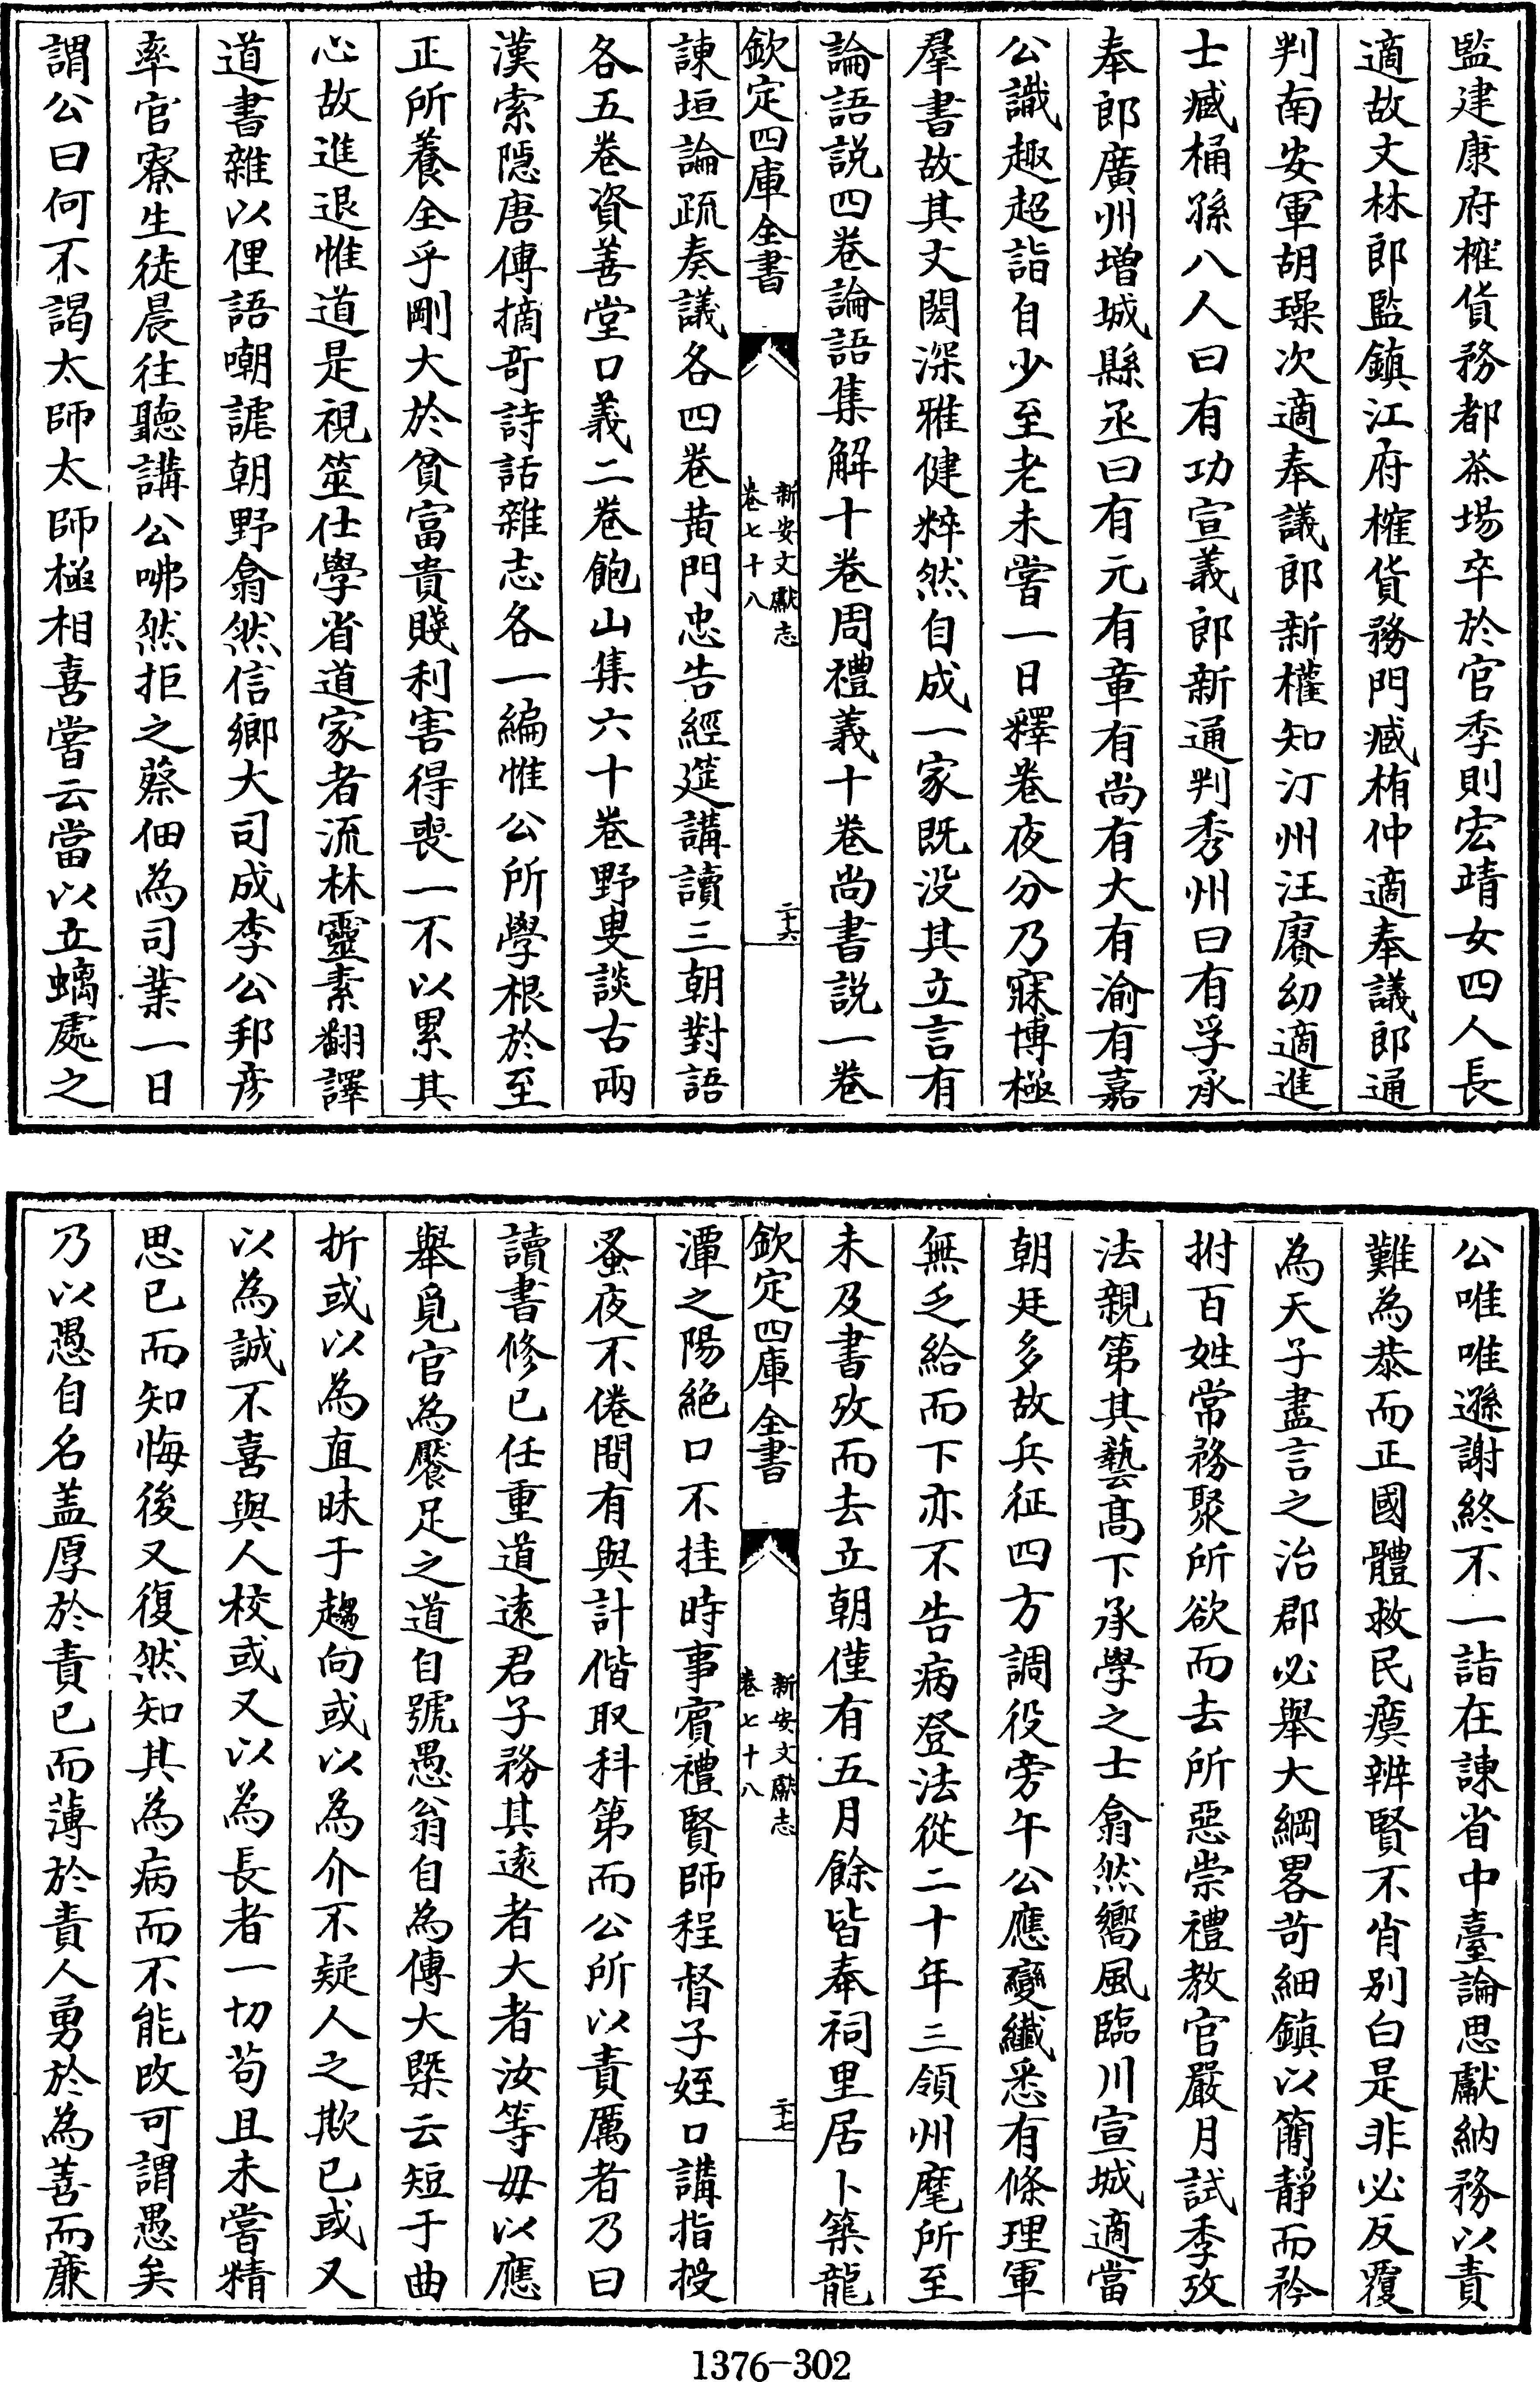 監建康府榷貨務都茶場卒於官季則宏靖女四人長
適故文林郎監鎮江府榷貨務門臧栯仲適奉議郎通
判南安軍胡璪次適奉議郎新權知汀州汪賡幼適進
士臧桷孫八人曰有功宣義郎新通判秀州曰有孚承
奉郎廣州增城縣丞曰有元有章有尚有大有渝有嘉
公識趣超詣自少至老未嘗一日釋卷夜分乃寐博極
羣書故其文閎深雅健粹然自成一家既没其立言有
論語説四卷論語集解十卷周禮義十卷尚書説一卷
欽定四庫全書
新安文獻志
卷七十八
二十六
諫垣論疏奏議各四卷黄門忠告經筵講讀三朝對語
各五卷資善堂口義二卷飽山集六十卷野叟談古兩
漢索隱唐傳摘奇詩話雜志各一編惟公所學根於至
正所養全乎剛大於貧富貴賤利害得喪一不以累其
心故進退惟道是視筮仕學省道家者流林靈素翻譯
道書雜以俚語嘲謔朝野翕然信鄉大司成李公邦彦
率官寮生徒晨往聽講公咈然拒之蔡佃為司業一日
謂公曰何不謁太師太師極相喜嘗云當以立螭處之
公唯唯遜謝終不一詣在諫省中臺論思獻納務以責
難為恭而正國體救民瘼辨賢不肖别白是非必反覆
為天子盡言之治郡必舉大綱畧苛細鎮以簡靜而矜
拊百姓常務聚所欲而去所惡崇禮教官嚴月試季攷
法親第其藝高下承學之士翕然嚮風臨川宣城適當
朝廷多故兵征四方調役旁午公應變纖悉有條理軍
無乏給而下亦不告病登法從二十年三領州麾所至
未及書攷而去立朝僅有五月餘皆奉祠里居卜築龍
欽定四庫全書
新安文獻志
卷七十八
二十七
潭之陽絶口不挂時事賓禮賢師程督子姪口講指授
蚤夜不倦間有與計偕取科第而公所以責厲者乃曰
讀書修已任重道遠君子務其遠者大者汝等毋以應
舉覓官為饜足之道自號愚翁自為傳大槩云短于曲
折或以為直昧于趨向或以為介不疑人之欺已或又
以為誠不喜與人校或又以為長者一切苟且未嘗精
思已而知悔後又復然知其為病而不能改可謂愚矣
乃以愚自名盖厚於責已而薄於責人勇於為善而亷
1376-302